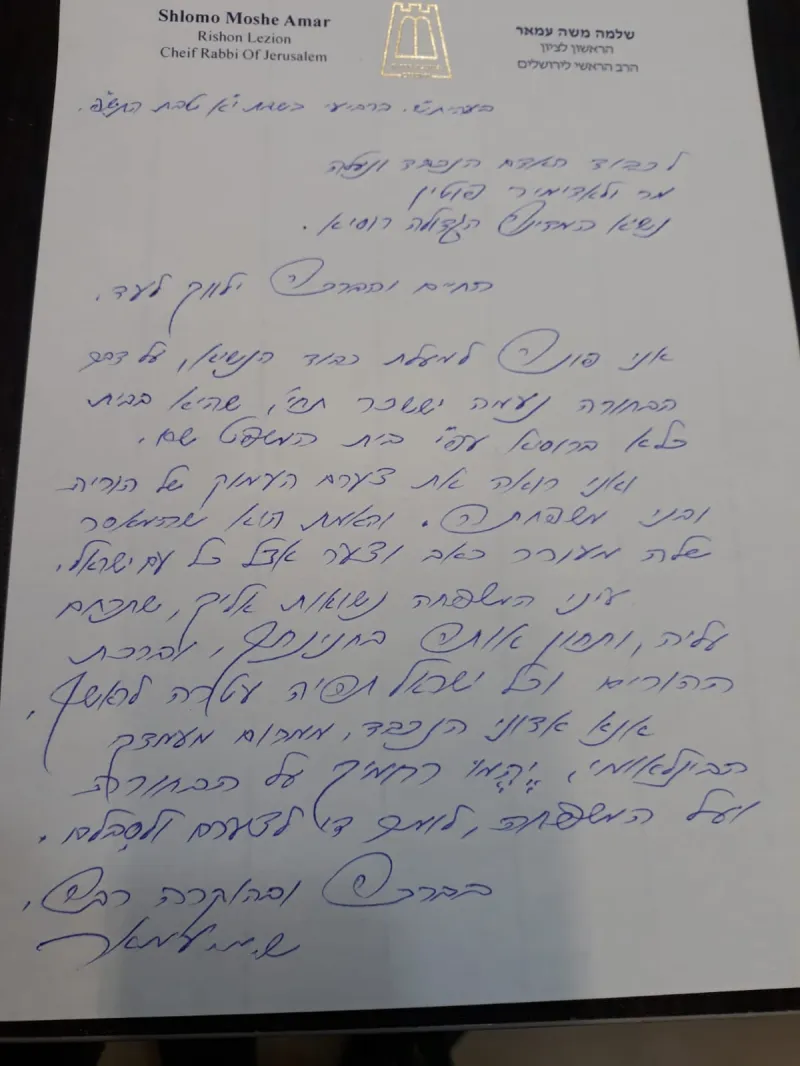 Shlomo Moshe Amar
Rishon Lezion
Cheif Rabbi Of Jerusalem
שלמה משה עמאר
הראשון לציון
הרב הראשי לירושלים
בעהית"ש. ברביעי בשבת י"א טבת התש"פ.
לכבוד האדם הנכבד ונעלה
מר ולאדימיר פוטין
נשיא המדינה הגדולה רוסיא.
החיים והברכה ילווך לעד.
אני פונה למעלת כבוד הנשיא, על דבר
הבחורה נעמה יששכר תחי', שהיא בבית
כלא ברוסיא עפ"י בית המשפט שם.
ואני רואה את צערם העמוק של הוריה
ובני משפחתה. והאמת הוא שהמאסר
שלה מעורר כאב וצער אצל כל עם ישראל.
עיני המשפחה נשואות אליך, שתרחם
עליה, ותחון אותה בחנינתך, וברכת
ההורים וכל ישראל תהיה עטרה לראשך,
אנא אדוני הנכבד, ממרום מעמדך
הבינלאומי, יֶהֱמוּ רחמיך על הבחורה
ועל המשפחה, לומר די לצערם ולסבלם.
בברכה ובהוקרה רבה,
ש.מ. עמאר